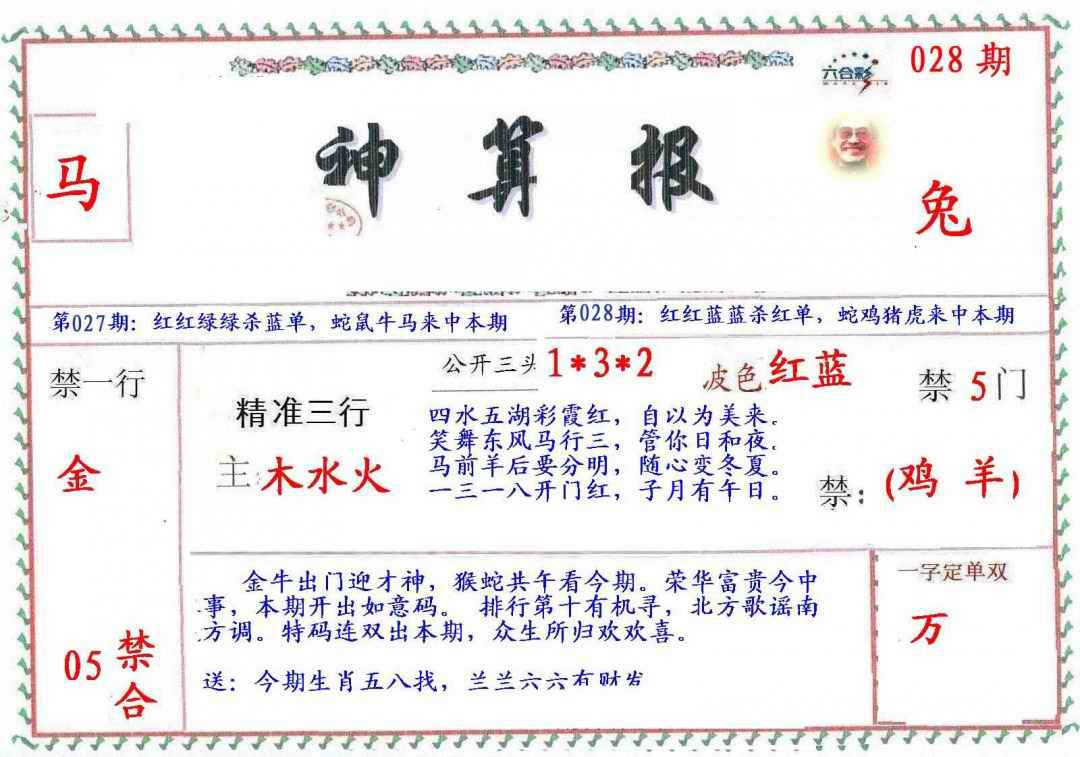 028期
六合彩
神算报
马
兔
第027期：红红绿绿杀蓝单，蛇鼠牛马来中本期
第028期：红红蓝蓝杀红单，蛇鸡猪虎来中本期
禁一行
金
05
禁
合
精准三行
主:木水火
公开三头1*3*2
波色 红蓝
四水五湖彩霞红，自以为美来。
笑舞东风马行三，管你日和夜.
马前羊后要分明，随心变冬夏。
一三一八开门红，子月有午日。
禁5门
禁:(鸡 羊)
金牛出门迎才神，猴蛇共午看今期。荣华富贵今中
事，本期开出如意码。 排行第十有机寻，北方歌谣南
方调。特码连双出本期，众生所归欢欢喜。
送：今期生肖五八找，兰兰六六有财发
一字定单双
万